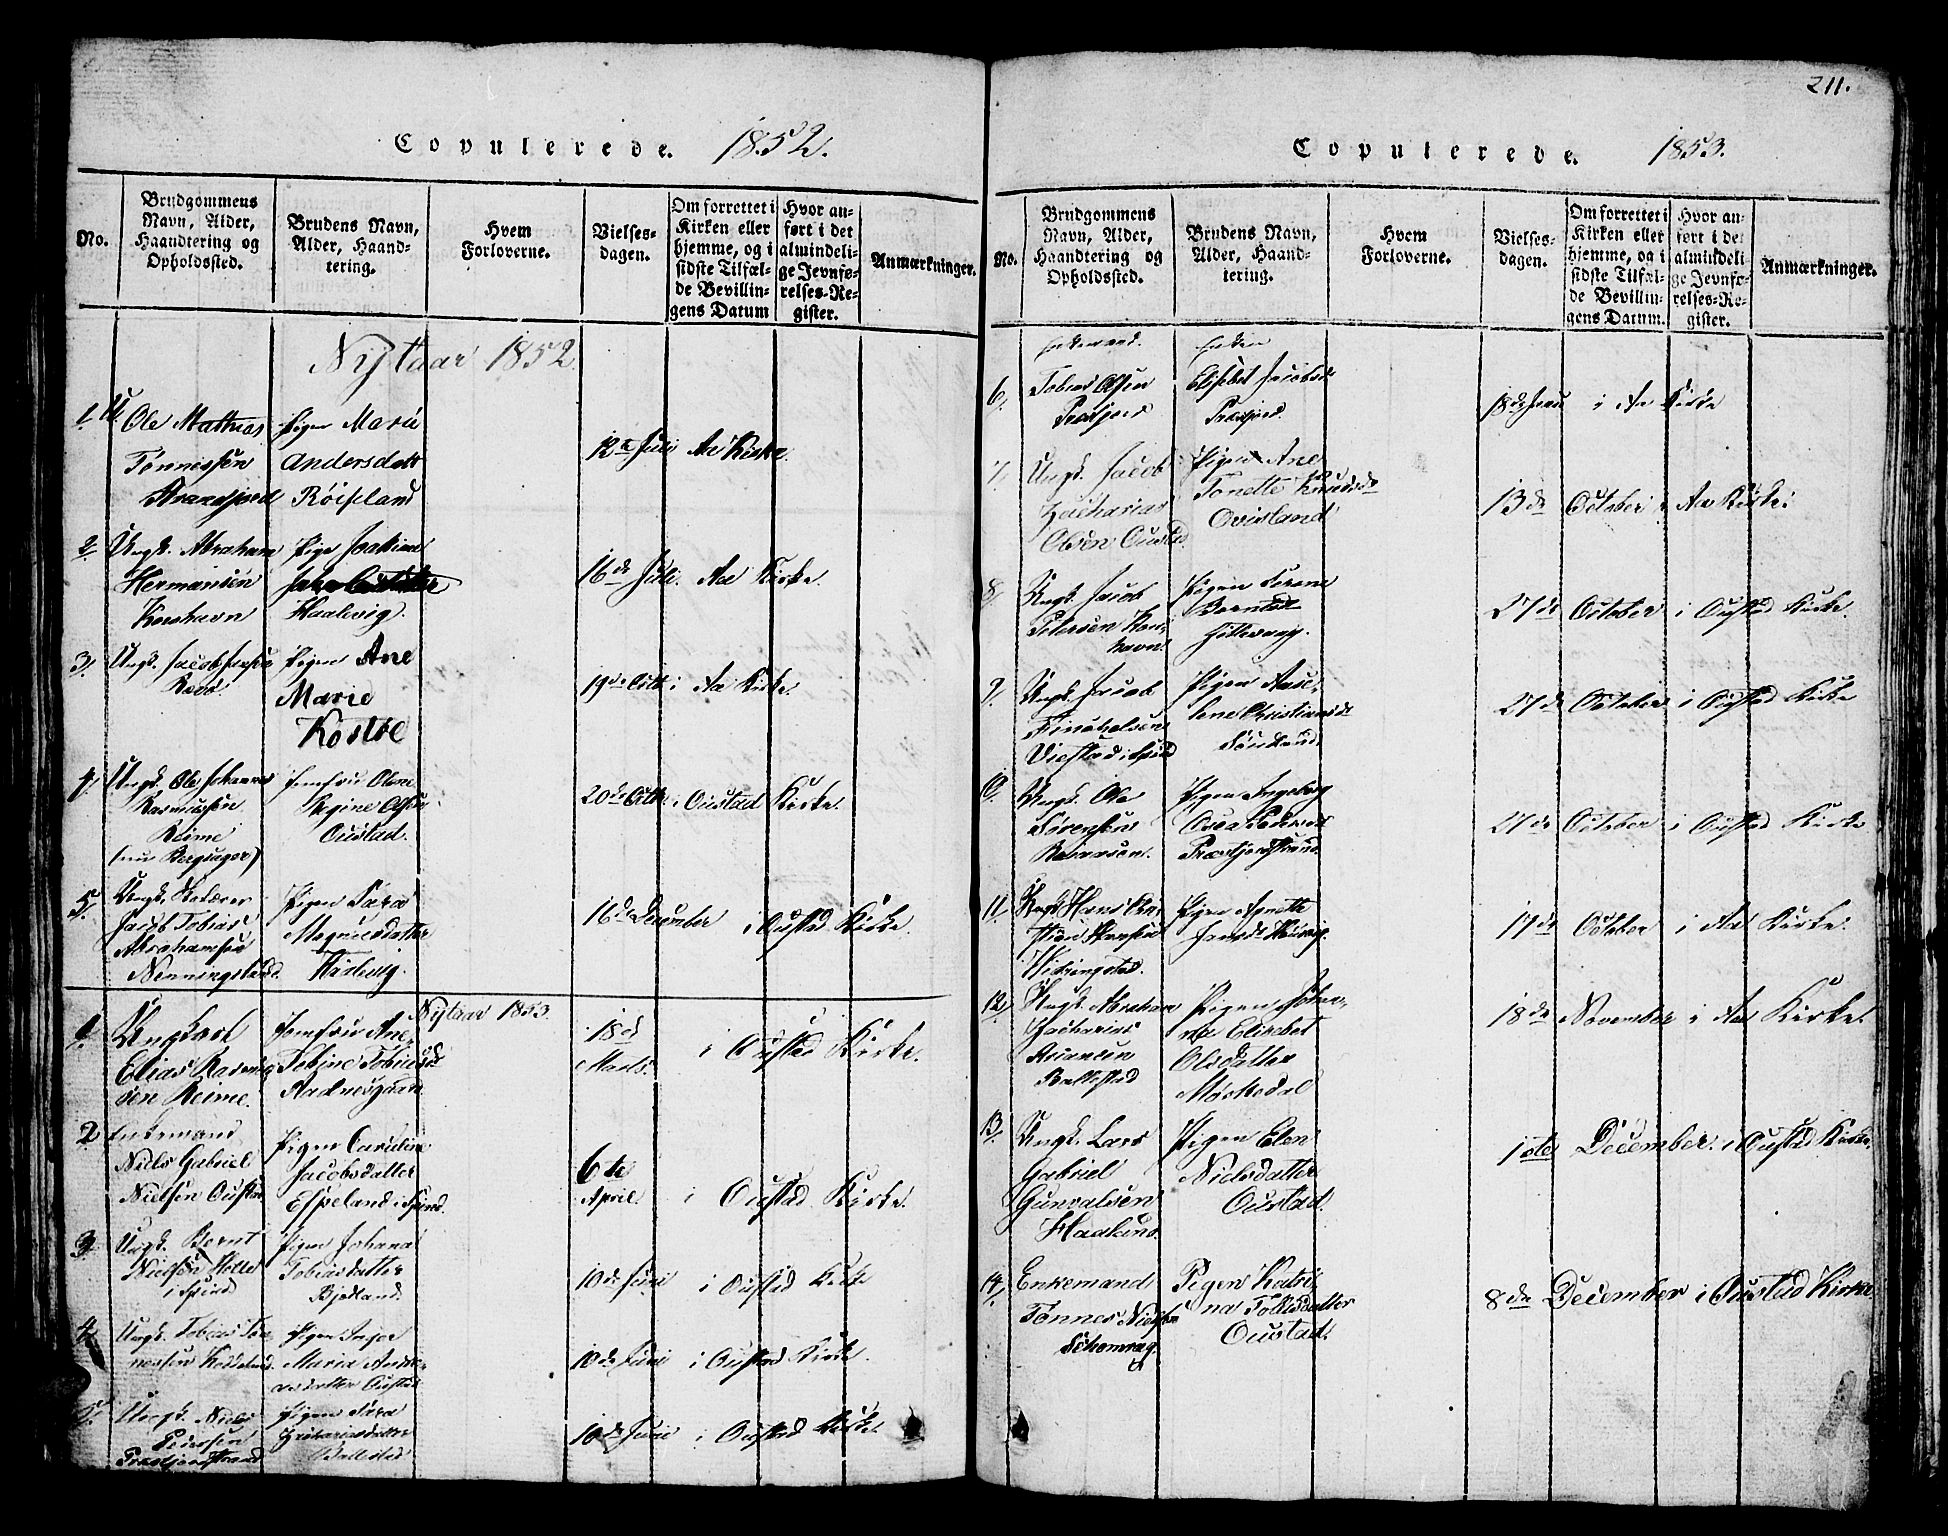 Copulerede. 1852.
No.
Brudgommens
Navn, Alder,
Haandtering og
Opholdssted.
Brudens Navn,
Alder, Haand-
tering.
Hvem
Forloverne.
Vielses-
dagen.
Om forrettet i
Kirken eller
hjemme, og i
sidste Tilfæl-
de Bevillin-
gens Datum
Hvor an-
ført i det
almindeli-
ge Jevnfø-
relses-Re-
gister.
Anmærkninger.
Nytaar 1852
1. U.
Ole Mathias
Tønnessen
Strandfjord
Pigen Marie
Andersdatt
Røiseland
12te Juli Aa Kirke.
2.
Ungk. Abraham
Hermansen
Korshavn
Pige Joakime
Haalevig.
16de Juli. Aa Kirke.
3.
Ungk. Jacob Jensen
Rævø
Pigen Ane
Marie
Kostøl
19de Octb i Aa Kirke.
4.
Ungk. Ole Johannes
Rasmussen
Reime
Jomfru Olene
Regine Olsen
Oustad.
20de Octb. i Oustad Kirke.
5.
Ungk.
Jacob Tobias
Abrahamsen
Nenningsland.
Pigen Sara
Magnusdatter
16de December i Oustad Kirke.
Nytaar 1853.
1.
Ungkarl
Elias Rasmus-
sen Reime.
Jomfru Ane
Tobine Tobiasd
18d
Marts.
i Oustad Kirke.
2
Enkemand
Niels Gabriel
Nielsen Oustad
Pigen Caroline
Jacobsdatter
Espeland i Spind.
6te
April
i Oustad Kirke.
3.
Ungk. Bernt
Nielsen Helle
i Spind
Pigen Johana
Tobiasdatter
Bjødland.
10de Juni i Oustad Kirke
4.
Ungk. Tobias Tøn-
nessen
Pigen Inger
Maria Andre-
asdatter Oustad
10de Juni i Oustad Kirke.
5.
Ungk. Niels
Pedersen
Præstjordstrand
Pigen Sara
Zakariasdatter
Ballestad
10de Juni i Oustad Kirke.
211.
Copulerede. 1853.
No.
Brudgommens
Navn, Alder,
Haandtering og
Opholdssted.
Brudens Navn,
Alder, Haand-
tering.
Hvem
Forloverne.
Vielses-
dagen.
Om forrettet i
Kirken eller
hjemme, og i
sidste Tilfæl-
de Bevillin-
gens Datum.
Hvor an-
ført i det
almindeli-
ge Jevnfø-
relses-Re-
gister.
Anmærkninger.
6.
Enkemand.
Tobias Olsen
Præstjord
Enken
Elisebet Jacobsd
Præstjord.
18de Juni i Aa Kirke
7.
Ungk. Jacob
Zacharias
Olsen Oustad.
Pigen Ane
Tonette Knudsd
Qvisland
13de October i Aa Kirke.
8.
Ungk. Jacob
Petersen Kors-
havn.
Pigen Serene
Berntsd
27de October i Oustad Kirke.
9.
Ungk. Jacob
Viestad i Spind
Pigen Aase-
lene Christiansd
27de October i Oustad Kirke
10.
Ungk. Ole
Sørensen
Pigen Ingeborg
Præstjordstrand.
27de October i Oustad Kirke
11.
Ungk. Hans Kri-
stian Hansen
Widringstad.
Pigen Agnette
Jensd
17de October i Aa Kirke.
12.
Ungk. Abraham
Zacharias
Asiansen
Ballestad
Pigen Johan-
ne Elisebet
Olsdatter
Møskedal
18de November i Aa Kirke.
13.
Ungk. Lars
Gabriel
Gunvaldsen
Haaland.
Pigen Elen
Nielsdatter
Oustad.
1ste December. i Oustad Kirke.
14.
Enkemand
Tønnes Nielsen
Skomrag
Pigen Katri-
na Tollisdatter
Oustad.
8de December i Oustad Kirke